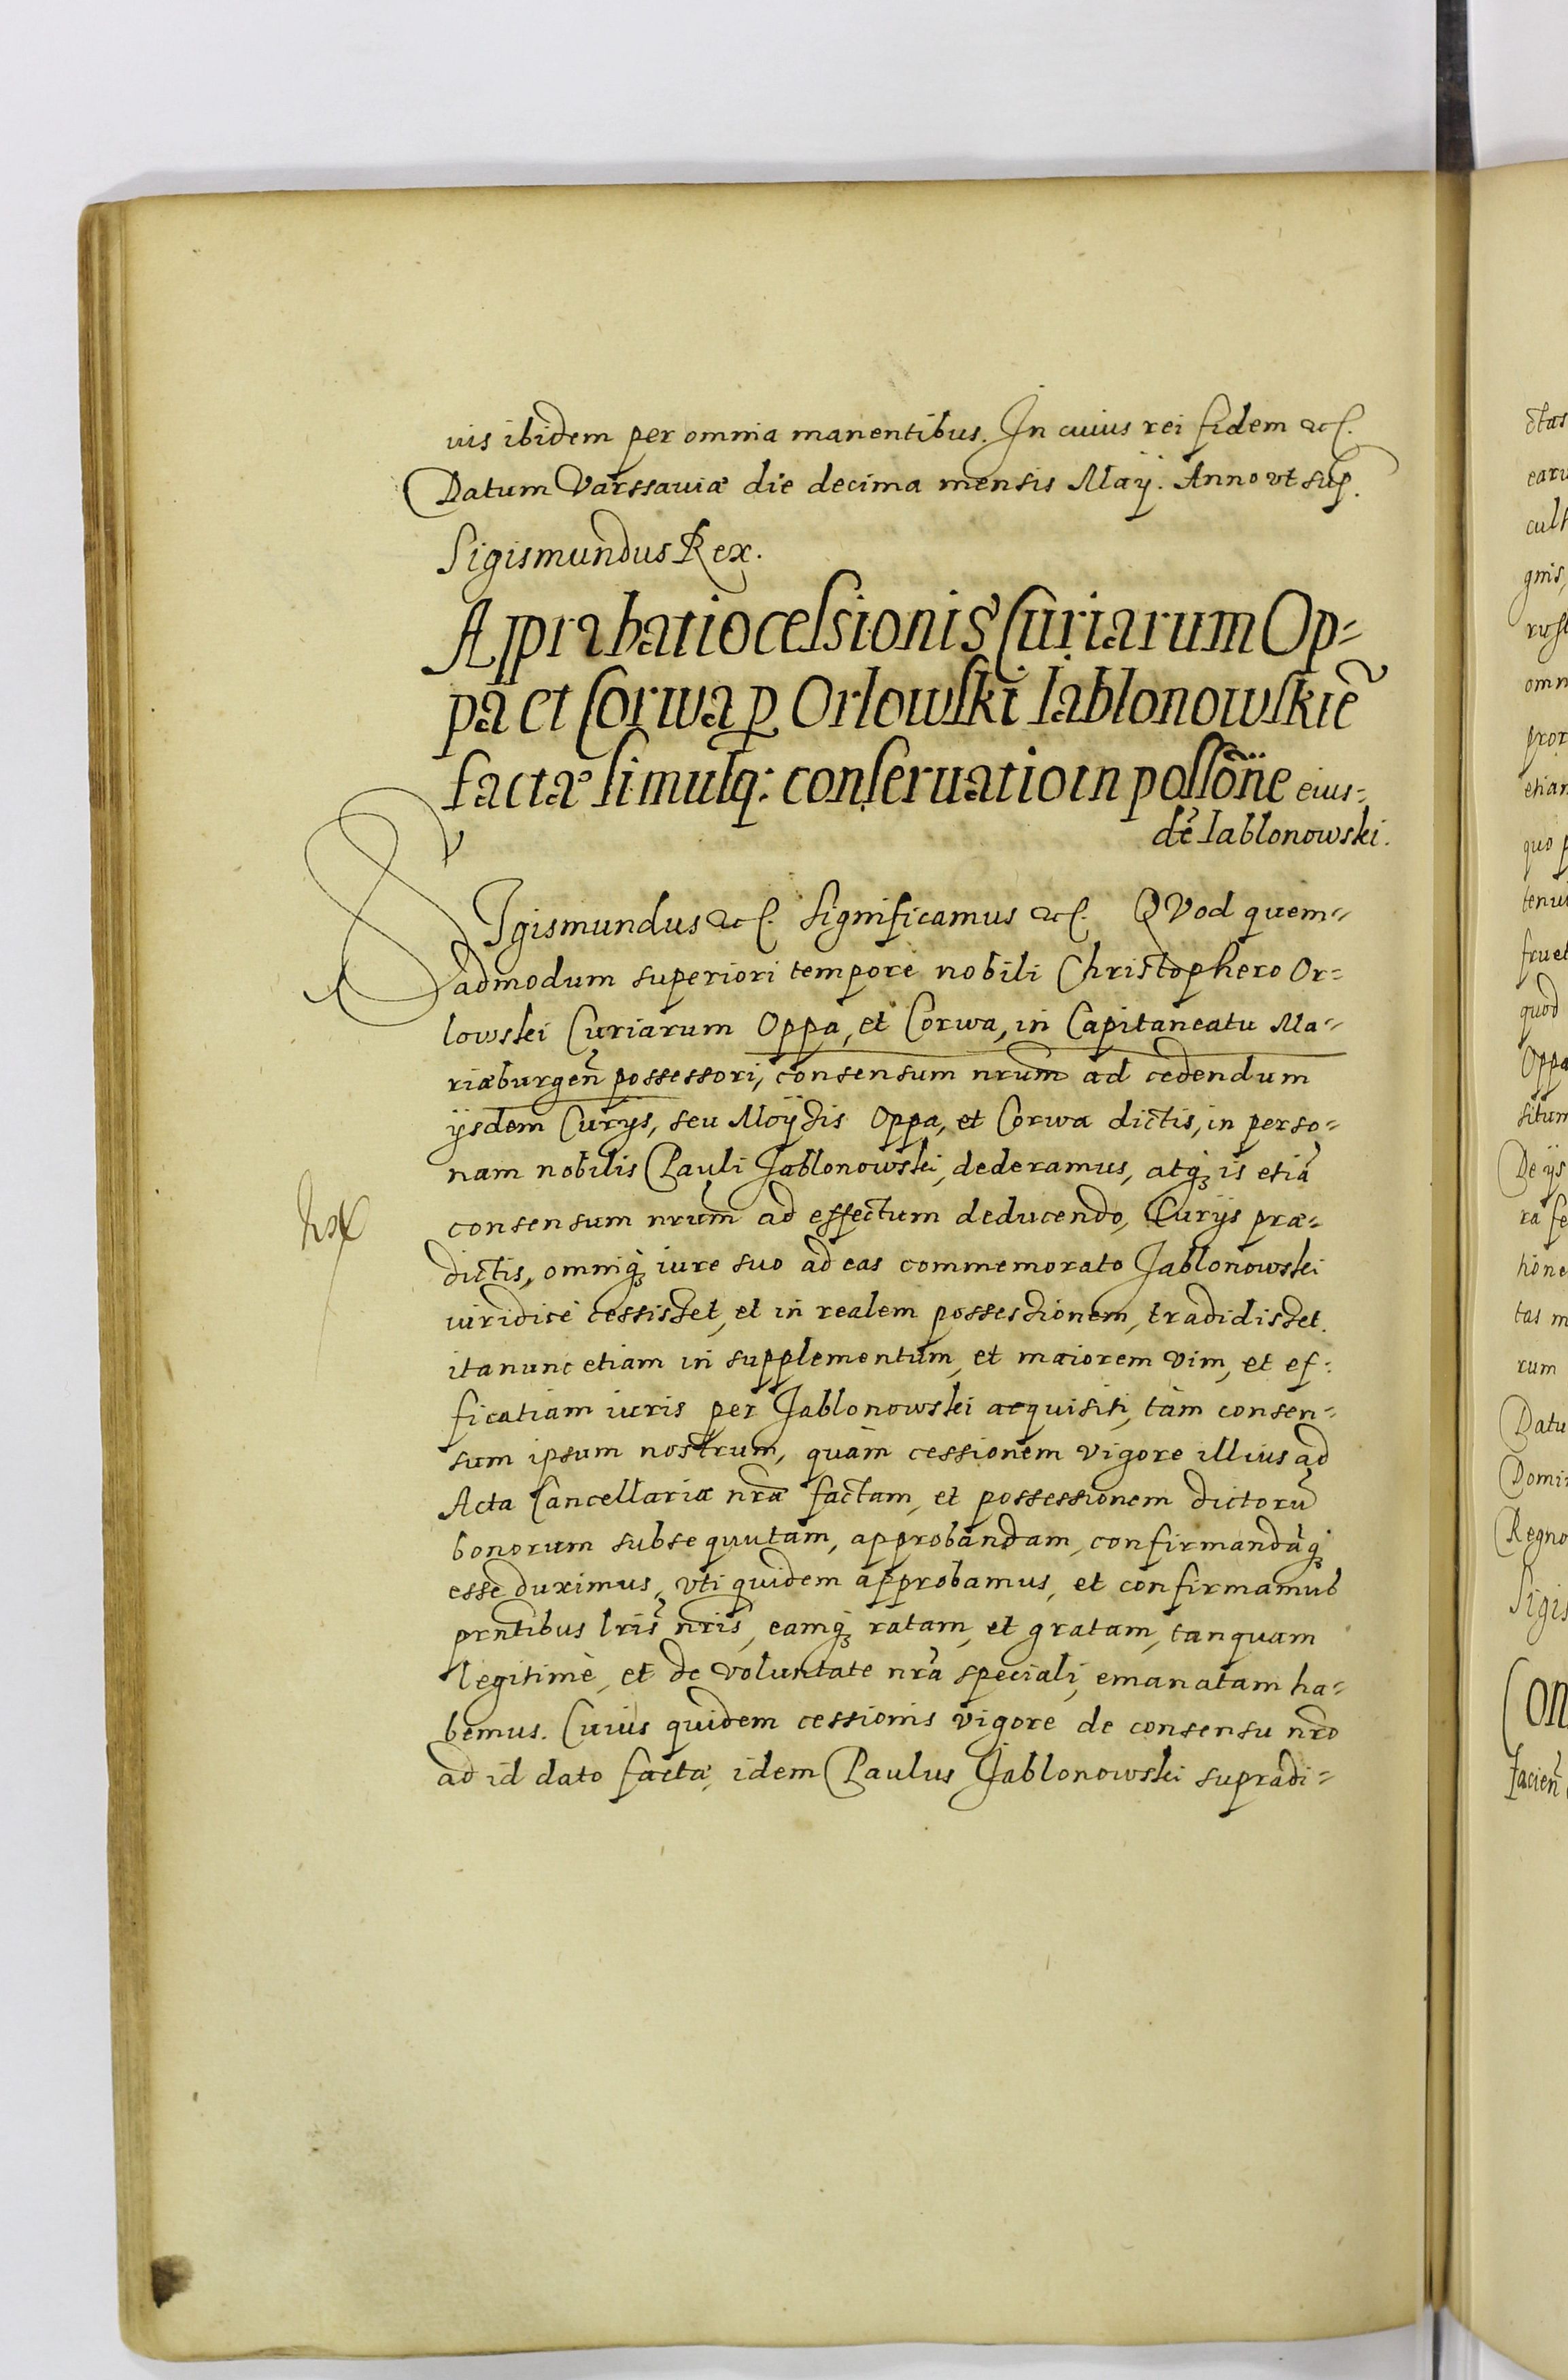 uis ibidem per omnia manentibus. In cuius rei fidem &c.
Datum Varssauiæ die decima mensis Maÿ. Anno vt sup.
Sigismundus Rex.
Approbatio cessionis Curiarum Op=
pa et Corwa p Orlowski Iablonowskiẽ
factæ simulq: conseruatio in possõne eius=
dẽ Iablonowski.
SIgismundus &c. Significamus &c. QVod quem=
admodum superiori tempore nobili Christophero Or=
lowski Curiarum Oppa, et Corwa, in Capitaneatu Ma=
riæburgeñ possessori, consensum nrũm ad cedendum
ijsdem Curijs, seu Moÿzis Oppa, et Corwa dictis, in perso=
nam nobilis Pauli Jablonowski, dederamus, atq is etiã
consensum nrũm ad effectum deducendo, Curijs præ=
dictis, omniq iure suo ad eas commemorato Jablonowski
iuridicè cessisset, et in realem possessionem, tradidisset.
ita nunc etiam in supplementum, et maiorem vim, et ef=
ficatiam iuris per Jablonowski acquisiti, tàm consen=
sum ipsum nostrum, quàm cessionem vigore illius ad
Acta Cancellariæ nrã factam, et possessionem dictorũ
bonorum subsequutam, approbandam, confirmandãq
esse duximus, vti quidem approbamus, et confirmamus
prñtibus lrĩs nrĩs, eamq ratam, et gratam, tanquam
legitimè, et de voluntate nrã speciali, emanatam ha=
bemus. Cuius quidem cessionis vigore de consensu nrõ
ad id dato factæ, idem Paulus Jablonowski supradi=
ctas
earu
cult
gnis,
rust
omn
pror
etian
quo p
tenu
fruct
quod
Oppa
situm
De ijs
ra fe
hone
tas m
rum
Datu
Domi
Regno
Sigis
Con
facieñ